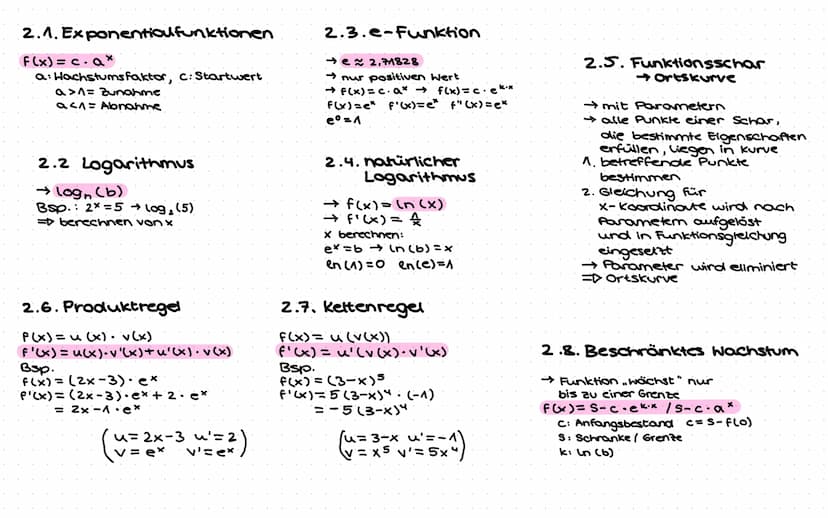 2.1. Exponentialfunktionen
f(x) = c · aˣ
a: Wachstumsfaktor, c: Startwert
a > 1 = Zunahme
a < 1 = Abnahme
2.2 Logarithmus
→ logₙ(b)
Bsp.: 2ˣ = 5 → log₂(5)
⇒ berechnen von x
2.3. e-Funktion
→ e ≈ 2,71828
→ nur positiven Wert
→ f(x) = c · aˣ → f(x) = c · eᵏ·ˣ
f(x) = eˣ f'(x) = eˣ f"(x) = eˣ
e⁰ = 1
2.4. natürlicher
Logarithmus
→ f(x) = ln(x)
→ f'(x) = 1/x
x berechnen:
eˣ = b → ln(b) = x
ln(1) = 0 ln(e) = 1
2.5. Funktionsschar
→ Ortskurve
→ mit Parametern
→ alle Punkte einer Schar,
die bestimmte Eigenschaften
erfüllen, liegen in Kurve
1. betreffende Punkte
bestimmen
2. Gleichung für
x-Koordinate wird nach
Parametern aufgelöst
und in Funktionsgleichung
eingesetzt
→ Parameter wird eliminiert
⇒ Ortskurve
2.6. Produktregel
f(x) = u(x) · v(x)
f'(x) = u(x) · v'(x) + u'(x) · v(x)
Bsp.
f(x) = (2x-3) · eˣ
f'(x) = (2x-3) · eˣ + 2 · eˣ
= 2x-1 · eˣ
(u = 2x-3 u' = 2
v = eˣ v' = eˣ)
2.7. Kettenregel
f(x) = u(v(x))
f'(x) = u'(v(x) · v'(x)
Bsp.
f(x) = (3-x)⁵
f'(x) = 5(3-x)⁴ · (-1)
= -5(3-x)⁴
(u = 3-x u' = -1
v = x⁵ v' = 5x⁴)
2.8. Beschränktes Wachstum
→ Funktion „wächst" nur
bis zu einer Grenze
f(x) = S-c · eᵏ·ˣ / S-c · aˣ
c: Anfangsbestand c = S-f(0)
S: Schranke / Grenze
k: ln(b)